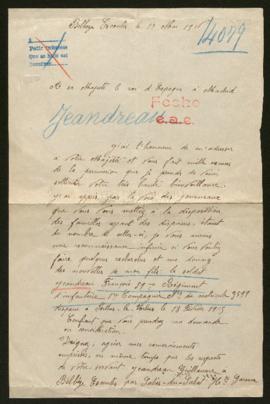 14099
le 13 Mai 1915
A sa Majesté le roi d'Espagne à Madrid
Fecho
Jeandreau
e.a.e.
j'ai l'honneur de m'adresser
à votre Majesté et vous fait mille excuses
de la permission que je prends de vous
solliciter votre très haute bienveillance.
j'ai appris par la voie des journaux
que vous vous mettez à la disposition
des familles ayant des disparus. étant
du nombre et
une reconnaissance infinie si vous vouliez
faire quelques recherches et me donner
des nouvelles de mon fils, le soldat
Jeandreau François 59e Régiment
d'infanterie 1re Compagnie No de matricule
disparu à le 18 Février 1915
Confiant que vous prendrez ma demande
en considération.
Daignez, agréer mes remerciements
anticipés, en même temps que les respects
de votre servant Jeandreau Guillaume à
par Salies-du-Salat Hte Garonne